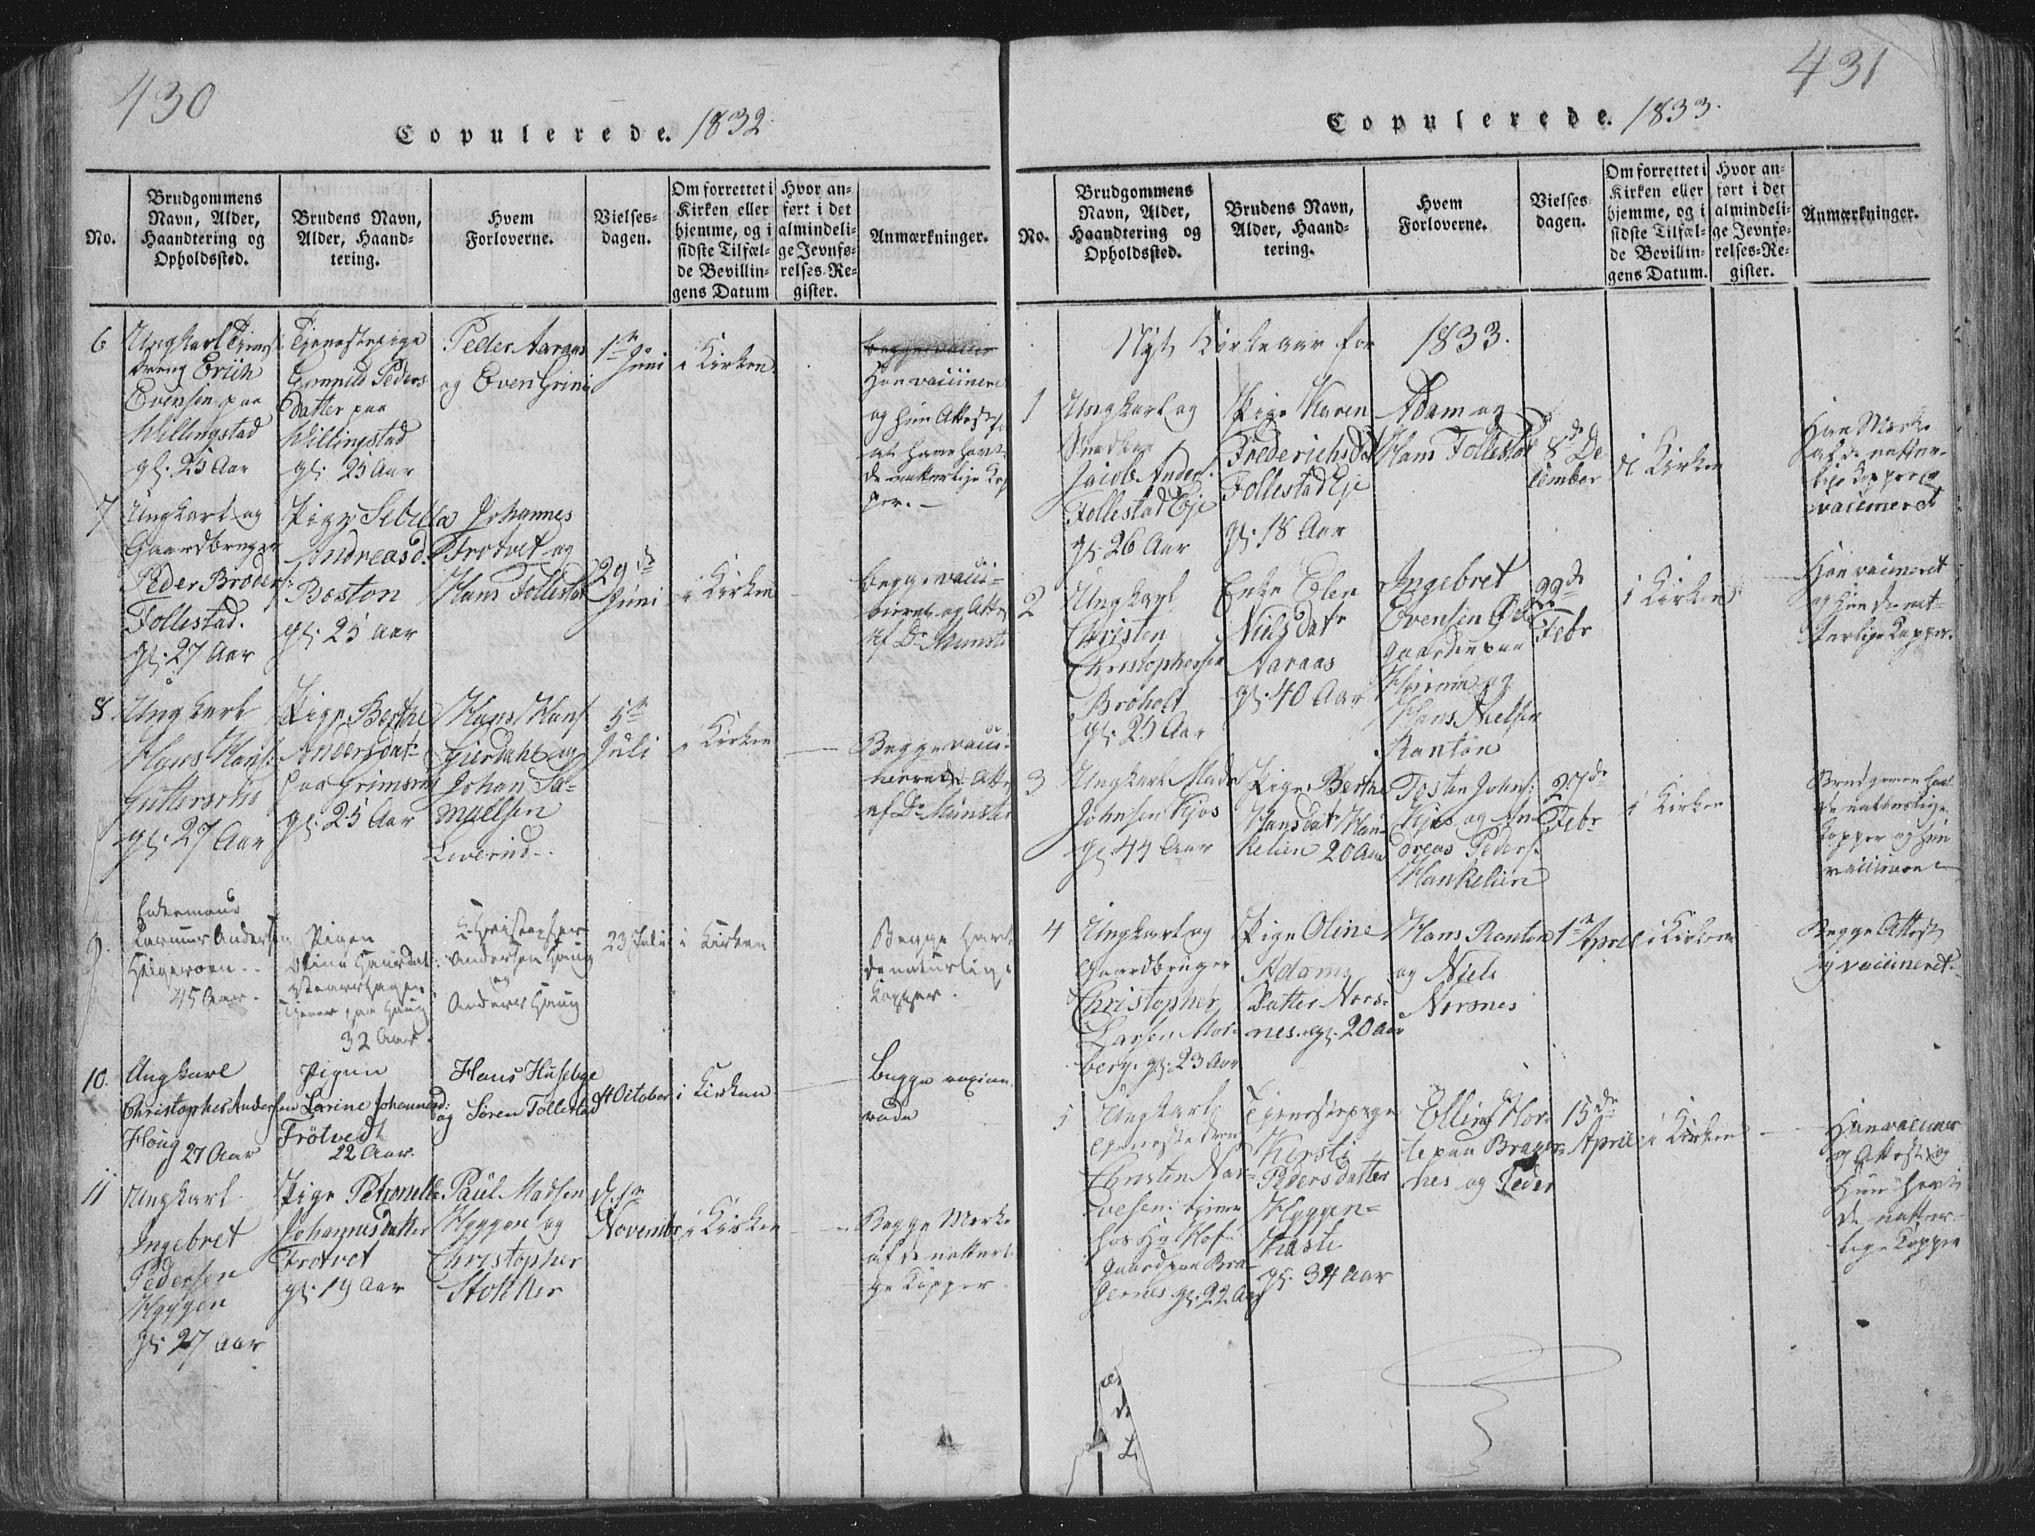 430
Copulerede. 1832.
No.
Brudgommens
Navn, Alder,
Haandtering og
Opholdssted.
Brudens Navn,
Alder, Haand-
tering.
Hvem
Forloverne.
Vielses-
dagen.
Om forrettet i
Kirken eller
hjemme, og i
sidste Tilfæl-
de Bevillin-
gens Datum
Hvor an-
ført i det
almindeli-
ge Jevnfø-
relses-Re-
gister.
Anmærkninger.
6
Ungkarl
Dreng Erich
Evensen paa
Willingstad
gl. 25 Aar
Tjenestepige
Gunnild Peders
datter paa
Willingstad
gl. 25 Aar
Peder Aaraas
og Even Grini
1ste
Juni
i Kirken
Han vaccineret
og hun Attest
de naturlige Kop
per. –
7
Ungkarl og
Gaardbruger
Peder Broders:
Follestad.
gl. 27 Aar
Pige Sebilla
Andreasd.
Boston
gl. 25 Aar
Johannes
Frotvet og
Hans Follestad
29de
Juni
i Kirken
begge vacci-
neret og Att
af Dr Munster
8
Ungkarl
Hans Hans:
Guttersrud
gl. 27 Aar
Pige Berthe
Andersdatr
paa Grimsrud
gl. 25 Aar
Hans Hans
Gierdahl og
Johan Sa-
muelsen
Leverud.
5te
Juli
i Kirken
Begge vacci-
nerede Att
af Dr Munster
9.
Enkemand
Rasmus Andersen
Helgeroen.
45 Aar.
Pigen
Oline Hansdat:
tjener paa Haug
32 Aar.
Christopher
Andersen Haug
og
Anders Haug
23 Juli
i Kirken
Begge havt
de naturlige
Kopper.
10.
Ungkarl
Christopher Andersen
Houg 27 Aar
Pigen
Lorine Johannesd:
Frötvedt
22 Aar.
Hans Husebye
og Søren Follestad
4 October
i Kirken
Begge vaxine-
rede
11
Ungkarl
Ingebret
Pedersen
Hyggen
gl: 27 Aar
Pige Petronelle
Johannesdatter
Frotvet
gl. 19 Aar
Paul Madsen
Hyggen og
Christopher
Stokker
d. 1ste
November
i Kirken
Begge Merke
af de natturli-
ge Kopper
431
Copulerede. 1833.
No.
Brudgommens
Navn, Alder,
Haandtering og
Opholdssted.
Brudens Navn,
Alder, Haand-
tering.
Hvem
Forloverne.
Vielses-
dagen.
Om forrettet i
Kirken eller
hjemme, og i
sidste Tilfæl-
de Bevillin-
gens Datum.
Hvor an-
ført i det
almindeli-
ge Jevnfø-
relses-Re-
gister.
Anmærkninger.
Nyt Kirkeaar for 1833.
1
Ungkarl og
Snedker
Jacob Anders:
Follestad Eje
gl. 26 Aar
Pige Karen
Frederichsdat
Follestad Eje
gl. 18 Aar
Adam og
Hans Follestad
8de De
cember
i Kirken
Han Merke
af de nattur-
lige Kopper og
vaccineret
2
Ungkarl
Christen
Christophersen
Broholt
gl. 25 Aar
Enke Elen
Nielsdatr
Aaraas
gl. 40 Aar
Ingebret
Evensen
gaarden paa
og
Hans Nielsen
Ranton
22de
Febr
i Kirken
Han vaccineret
og hun de nat-
turlige Kopper.
3
Ungkarl Mads
Johnsen Kjos
gl 44 Aar
Pige Berthe
Hansdatr Han-
kelien 20 Aar
Tosten Johns:
Kjos og An-
dreas Peders:
Hankelien
27de
Febr
i Kirken
Brudgomen
de natturlige
Kopper og hun
vaccineret
4
Ungkarl og
Gaardbruger
Christopher
Larsen Mor-
berg. gl. 23 Aar
Pige Oline
Adams
Datter Nors-
nes. gl. 20 Aar
Hans Ranton
og Niels
Norsnes
1ste April
i Kirken
Begge Attest
vaccineret.
5
Ungkarl
Tjeneste dreng
Christen Nar-
vesen: tjener
hos Hr Hof-
gaard paa Bra-
gernes gl. 22 Aar
Tjenestepige
Kirsti
Pedersdatter
Hyggen-
gl. 34 Aar
paa Brager-
nes og Peder
15de
April
i Kirken
Han vaccineret
og Attest og
hun havt
de nattur-
lige Kopper